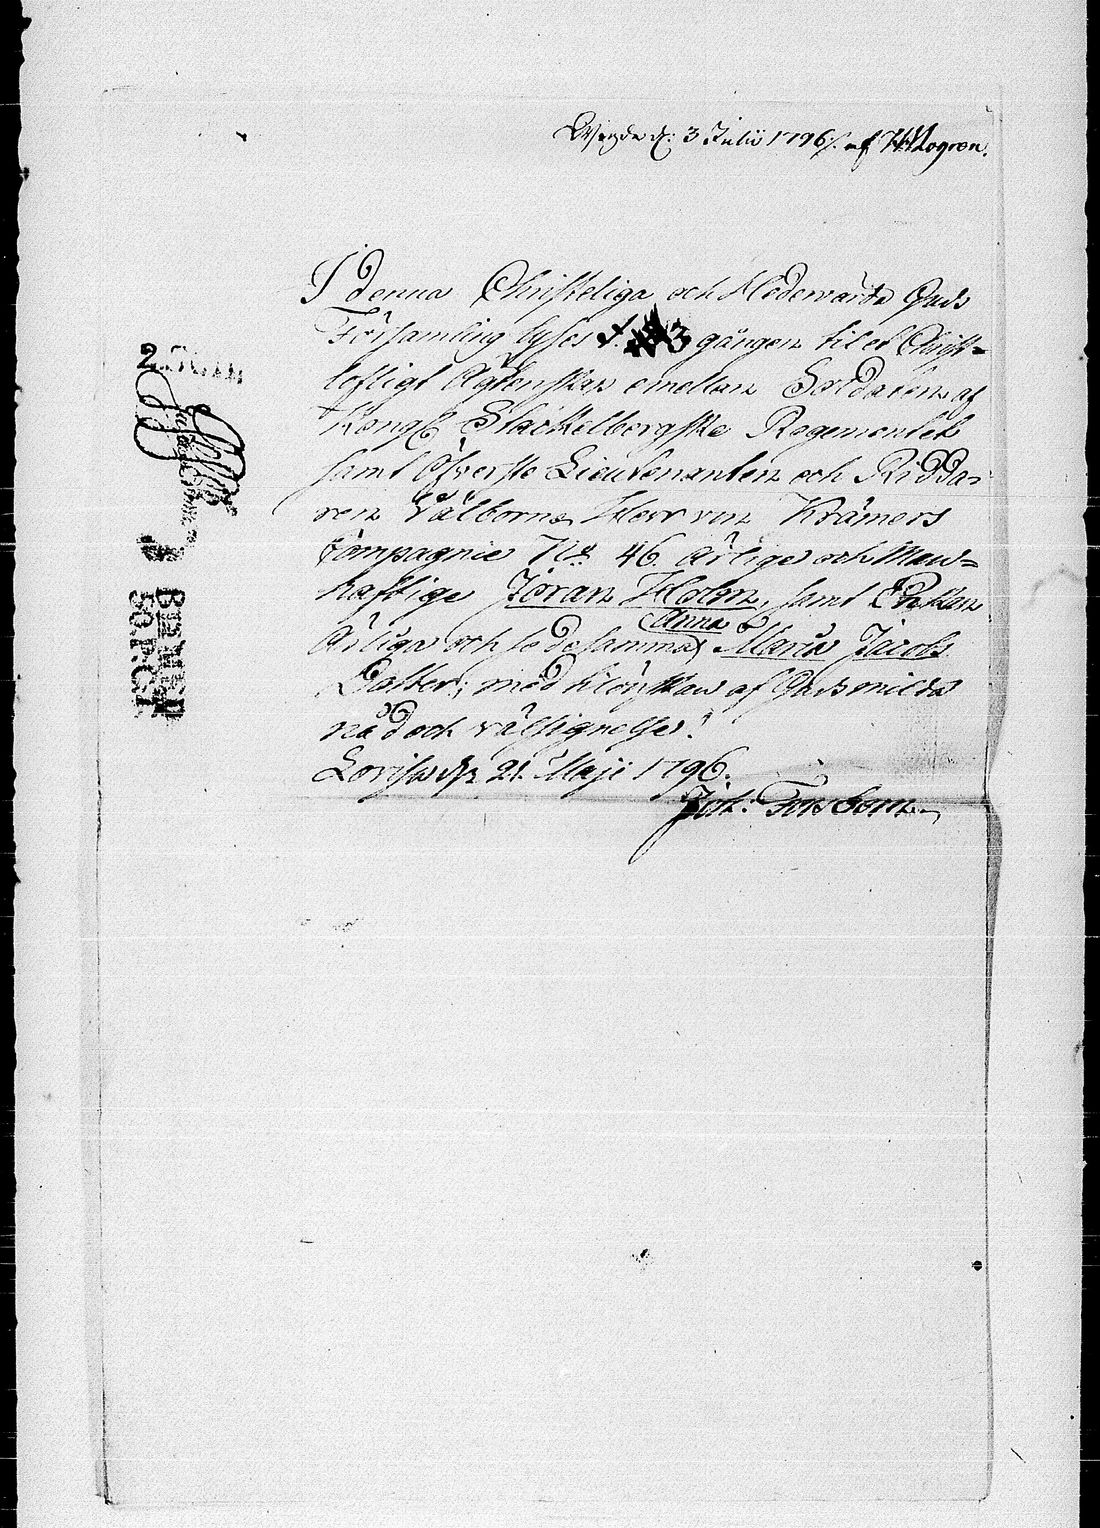 Wigde d: 3 Julii 1796 /. af
I denna Christeliga och Hedervärda Guds
Församling lyses 1. 3 gången til et Christ=
lofligt Ägtenskap emellan Soldaten af
Kongl Stackelbergske Regementet
samt Öfverste Lieutenanten och Ridda-
ren Välborne Herr von Krämers
Compagnie No 46 ärlige och Man=
haftige Jöran Holm, samt Enkan
Anna
Ärliga och Dedesamma Maria Jacobs
Dotter; med tilönskan af Guds milda
nåd och välsignelse!
Lovisa d 21 Maji 1796.
Joh: Forsbom
2